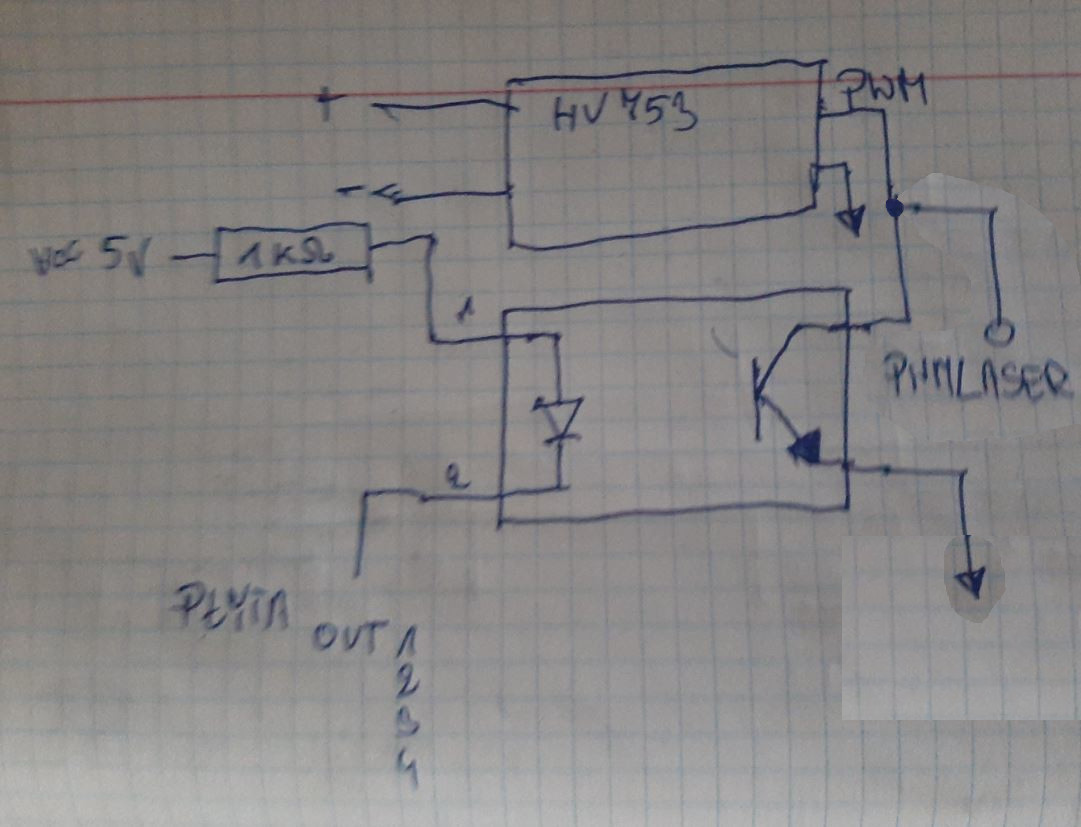 +
HV 753
PWM
-
5V
1KΩ
1
PWMLASER
2
OUT 1
2
3
4